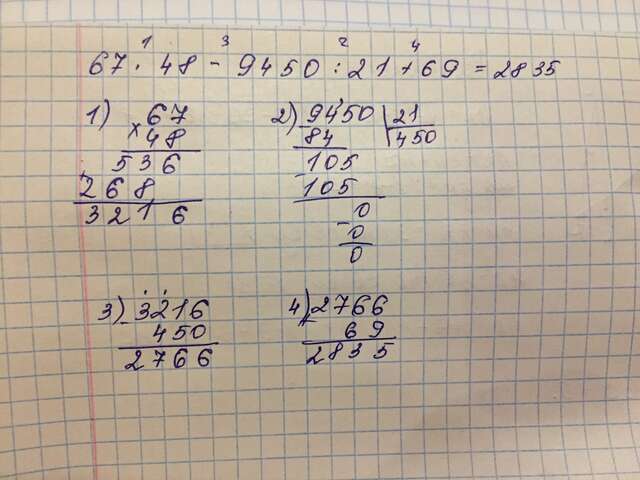 1 3 2 4
67 · 48 - 9450 : 21 + 69 = 2835
1) 67
× 48
536
268
3216
2) 9450 | 21
84 450
105
105
0
- 0
0
3) - 3216
450
2766
4) + 2766
69
2835